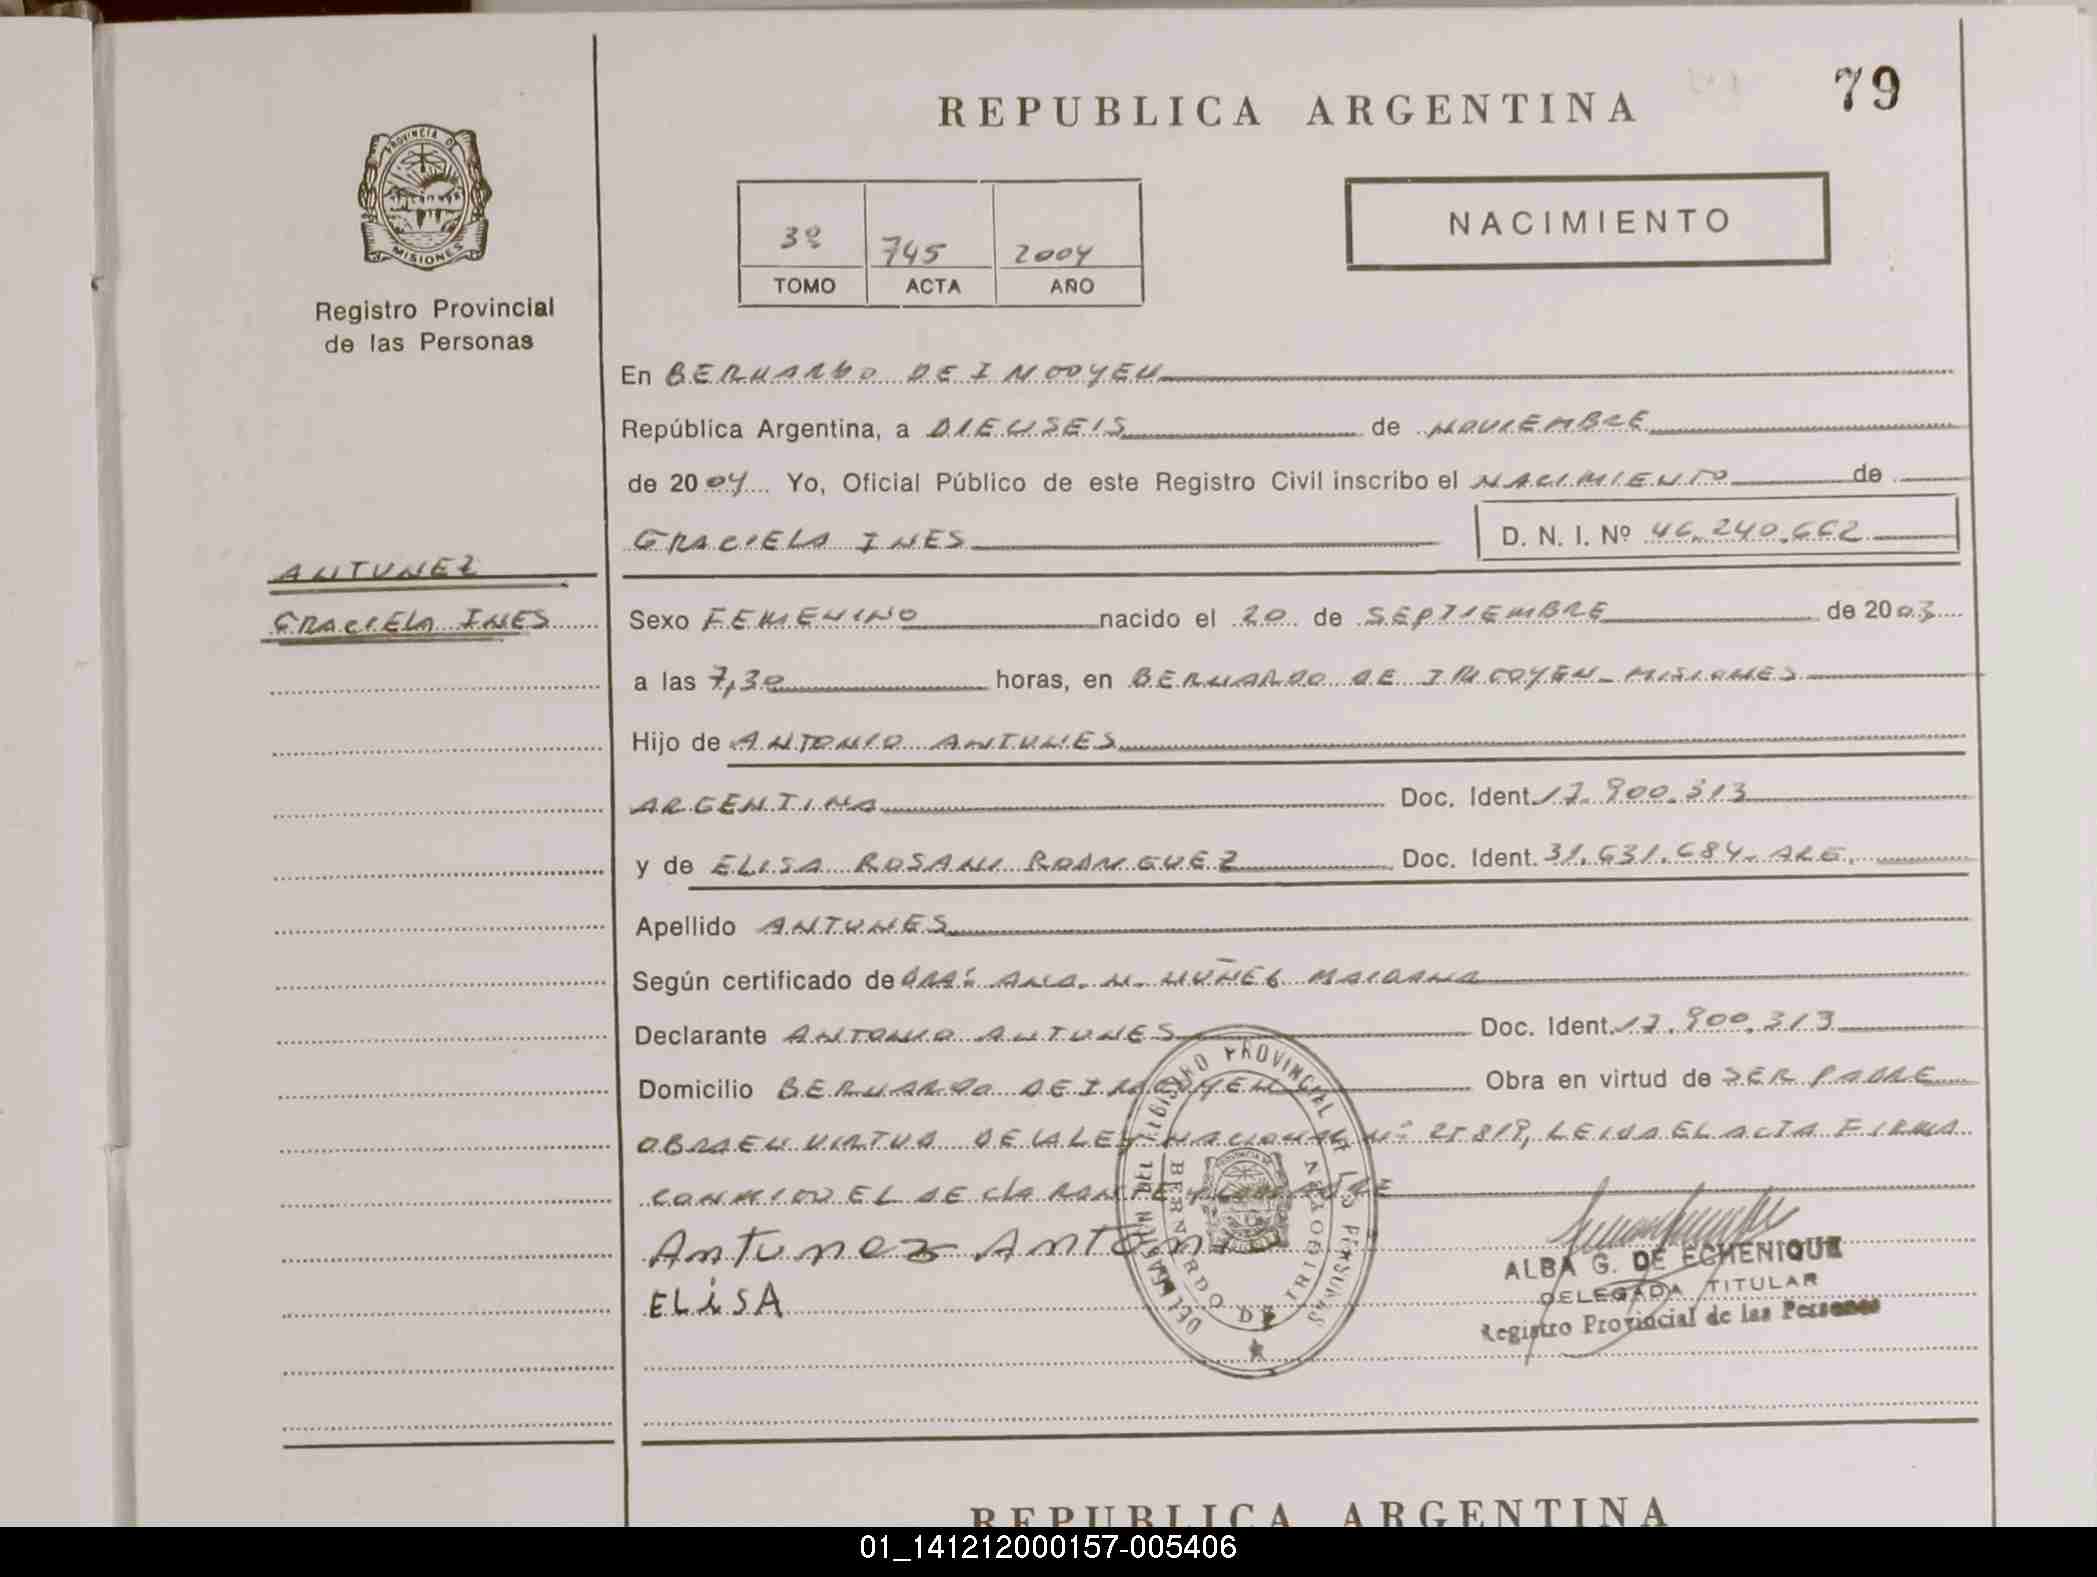 79
REPUBLICA ARGENTINA
PROVINCIA DE
MISIONES
Registro Provincial
de las Personas
3º 745 2004
TOMO ACTA AÑO
NACIMIENTO
En BERNARDO DE IRIGOYEN
República Argentina, a DIECISEIS de NOVIEMBRE
de 2004 Yo, Oficial Público de este Registro Civil inscribo el NACIMIENTO de
GRACIELA INES D. N. I. Nº 46.240.662
ANTUNEZ
GRACIELA INES
Sexo FEMENINO nacido el 20 de SEPTIEMBRE de 2003
a las 7,30 horas, en BERNARDO DE IRIGOYEN - MISIONES
Hijo de ANTONIO ANTUNES
ARGENTINA Doc. Ident. 17.900.313
y de ELISA ROSANI RODRIGUEZ Doc. Ident. 31.631.684. ARG.
Apellido ANTUNES
Según certificado de DRA: ANA. N. NUÑEZ MAIDANA
Declarante ANTONIO ANTUNES Doc. Ident. 17.900.313
Domicilio BERNARDO DE IRIGOYEN Obra en virtud de SER PADRE
OBRA EN VIRTUD DE LA LEY NACIONAL Nº 25819, LEIDA EL ACTA FIRMA
CONMIGO EL DECLARANTE Y LA MADRE
Antunez Antonio
ELiSA
DELEGACION DEL REGISTRO PROVINCIAL DE LAS PERSONAS
BERNARDO DE IRIGOYEN
ALBA G. DE ECHENIQUE
DELEGADA TITULAR
Registro Provincial de las Personas
REPUBLICA ARGENTINA
01_141212000157-005406